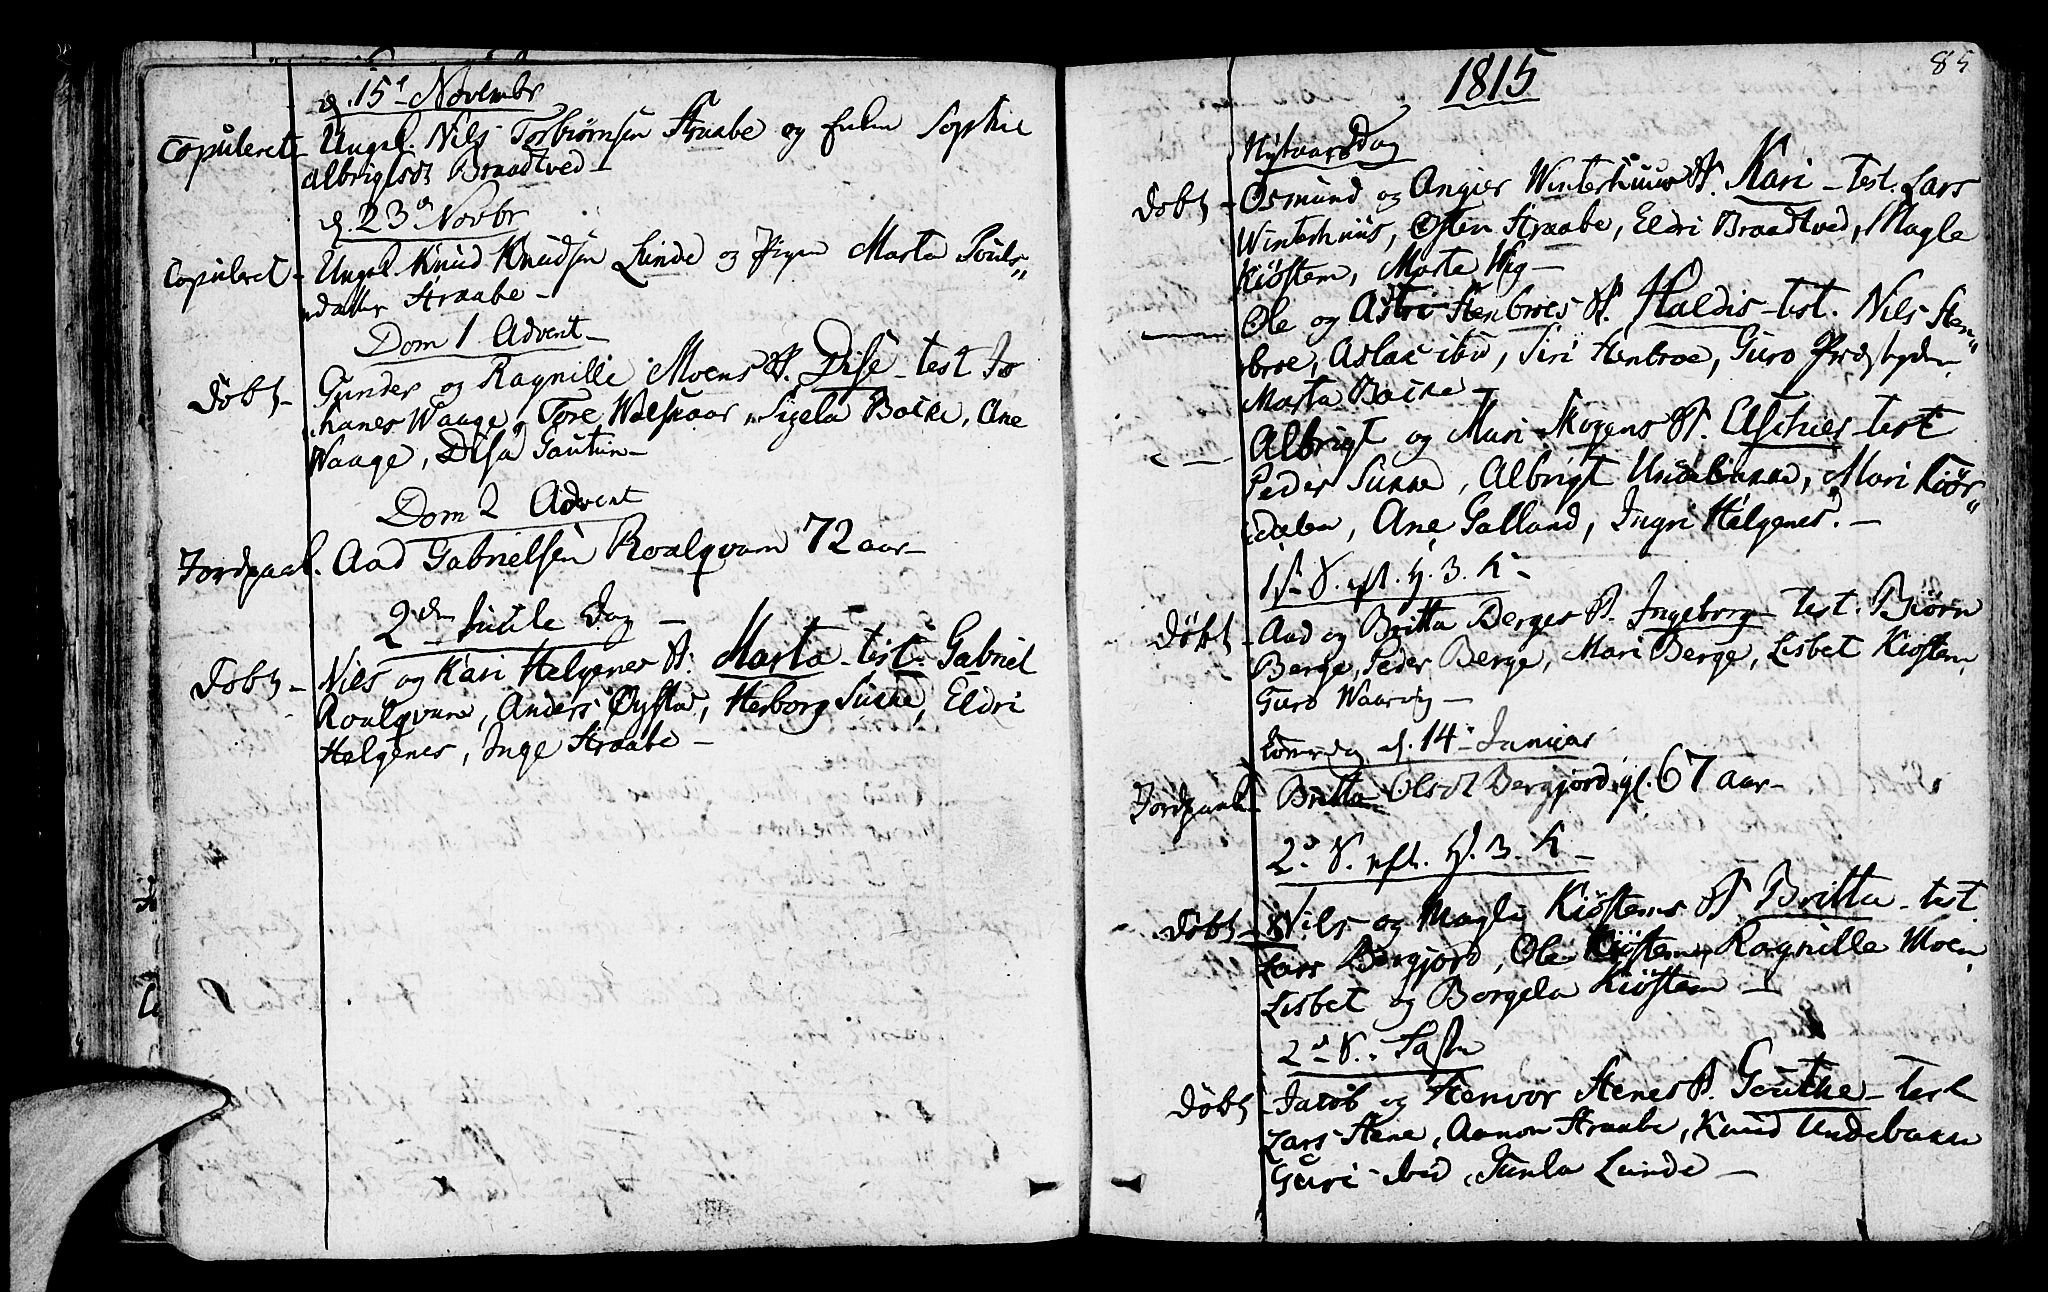 d. 15de Novembr
Copuleret - Ungel. Nils Torbiørnsen Straabe og Enken Sophie
Albrigtsdt Braadtved -
d. 23de Novbr
Copuleret - Ungel Knud Knudsen Lunde og Pigen Marta Pouls„
„datter Straabe -
Dom 1 Advent -
Døbt - Gunder og Ragnille Moens B. Dise - test Jo
„hanes Waage, Tore Walskaar, Sigela Bakke, Ane
Waage, Disa Gautun -
Dom 2 Advent
Jordpaak. Aad Gabrielsen Roalqvam 72 aar -
2den Juule Dag -
Døbt - Nils og Kari Helgenes B. Marta - test. Gabriel
Roalqvam, Anders Øystad, Herborg Sukke, Eldri
Helgenes, Inge Straabe -
85
1815
NytaarsDag
Døbt - Osmund og Angier Winterhuus B. Kari - test. Lars
Winterhuus, Osten Straabe, Eldri Braadtved, Magle
Kiøstem, Marta Wig -
Ole og Astri Stenbroes B. Haldis - test. Nils Sten„
broe, Aslac ibd, Siri Stenbroe, Guro
Marta Bakke -
Albrigt og Mari Skogens B. Elschies - test
Peder Sukke, Albrigt Undebakke, Mari Kiør„
„dalen, Ane Galland, Ingri Helgenes. -
1ste S. eft. H. 3. K -
Døbt - Aad og Britta Berges B. Ingeborg - test. Biørn
Berge, Peder Berge, Mari Berge, Lisbet Kiøstem,
Guro Waarvig -
Løverdag d. 14de Januar
Jordpaak - Britta Olsdt Bergjord, gl. 67 aar -
2d. S. eft. H. 3. K -
Døbt - Nils og Magle Kiøstems B Britta - test.
Lars Bergjord, Ole Kiøstem, Ragnille Moen,
Lisbet og Borgela Kiøstem -
2d S. i Faste
Døbt - Jacob og Stenvor Stenes B. Goutke - test
Lars Stene, Aamon Straabe, Knud Undebakke
Guri ibid, Gunla Lunde -